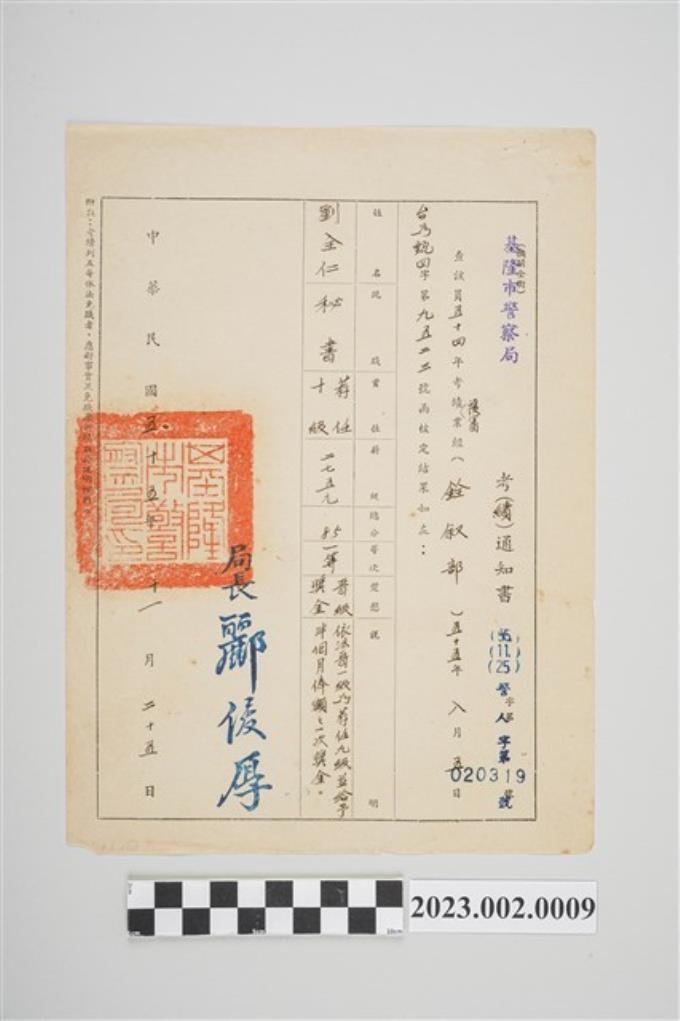 基隆市警察局
考(績)通知書
(55)
(11)
(25)
警人字第
020319
號
查該員五十四年考績業經(銓敘部)五十五年八月五日
獎
台乃銓四字第九五二二號函核定結果如左:
姓名
現職
劉全仁
秘書
薦任
十級
二七五元
總分
85
等次
一等
獎懲
晉級
獎金
說明
依法晉一級為薦任九級並給予
半個月俸額之一次獎金。
局長
酈俊厚
基隆市警察局印
中華民國五十五年十一月二十五日
附註:考績列五等依法免職者,應
2023.002.0009